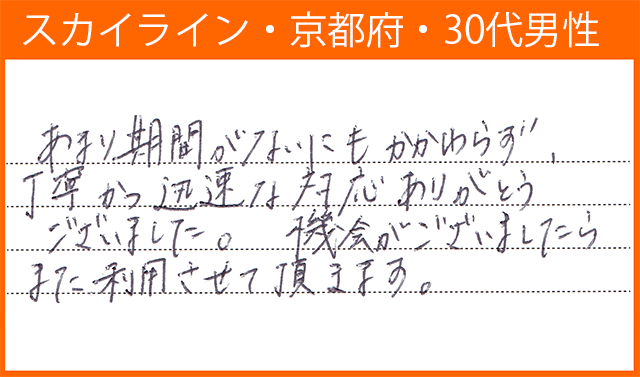 スカイライン・京都府・30代男性
あまり期間がないにもかかわらず、
丁寧かつ迅速な対応ありがとう
ございました。 機会がございましたら
また利用させて頂まます。